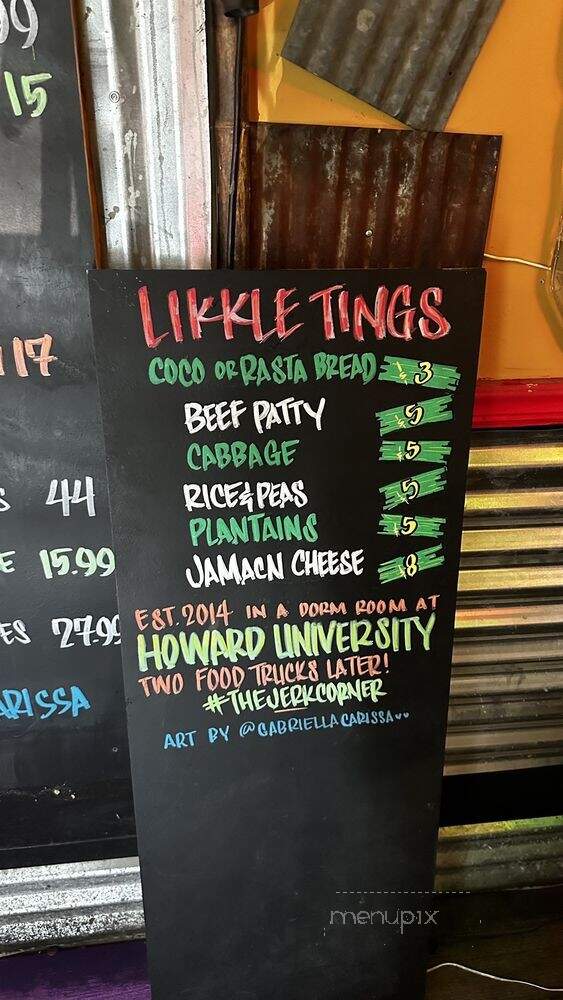 99
15
17
44
E 15.99
ES 27.99
ARISSA
LIKKLE TINGS
COCO OR RASTA BREAD 3
BEEF PATTY 5
CABBAGE 5
RICE & PEAS 5
PLANTAINS 5
JAMACN CHEESE 8
EST. 2014 IN A DORM ROOM AT
HOWARD UNIVERSITY
TWO FOOD TRUCKS LATER!
#THEJERKCORNER
ART BY @GABRIELLACARISSA
menupix